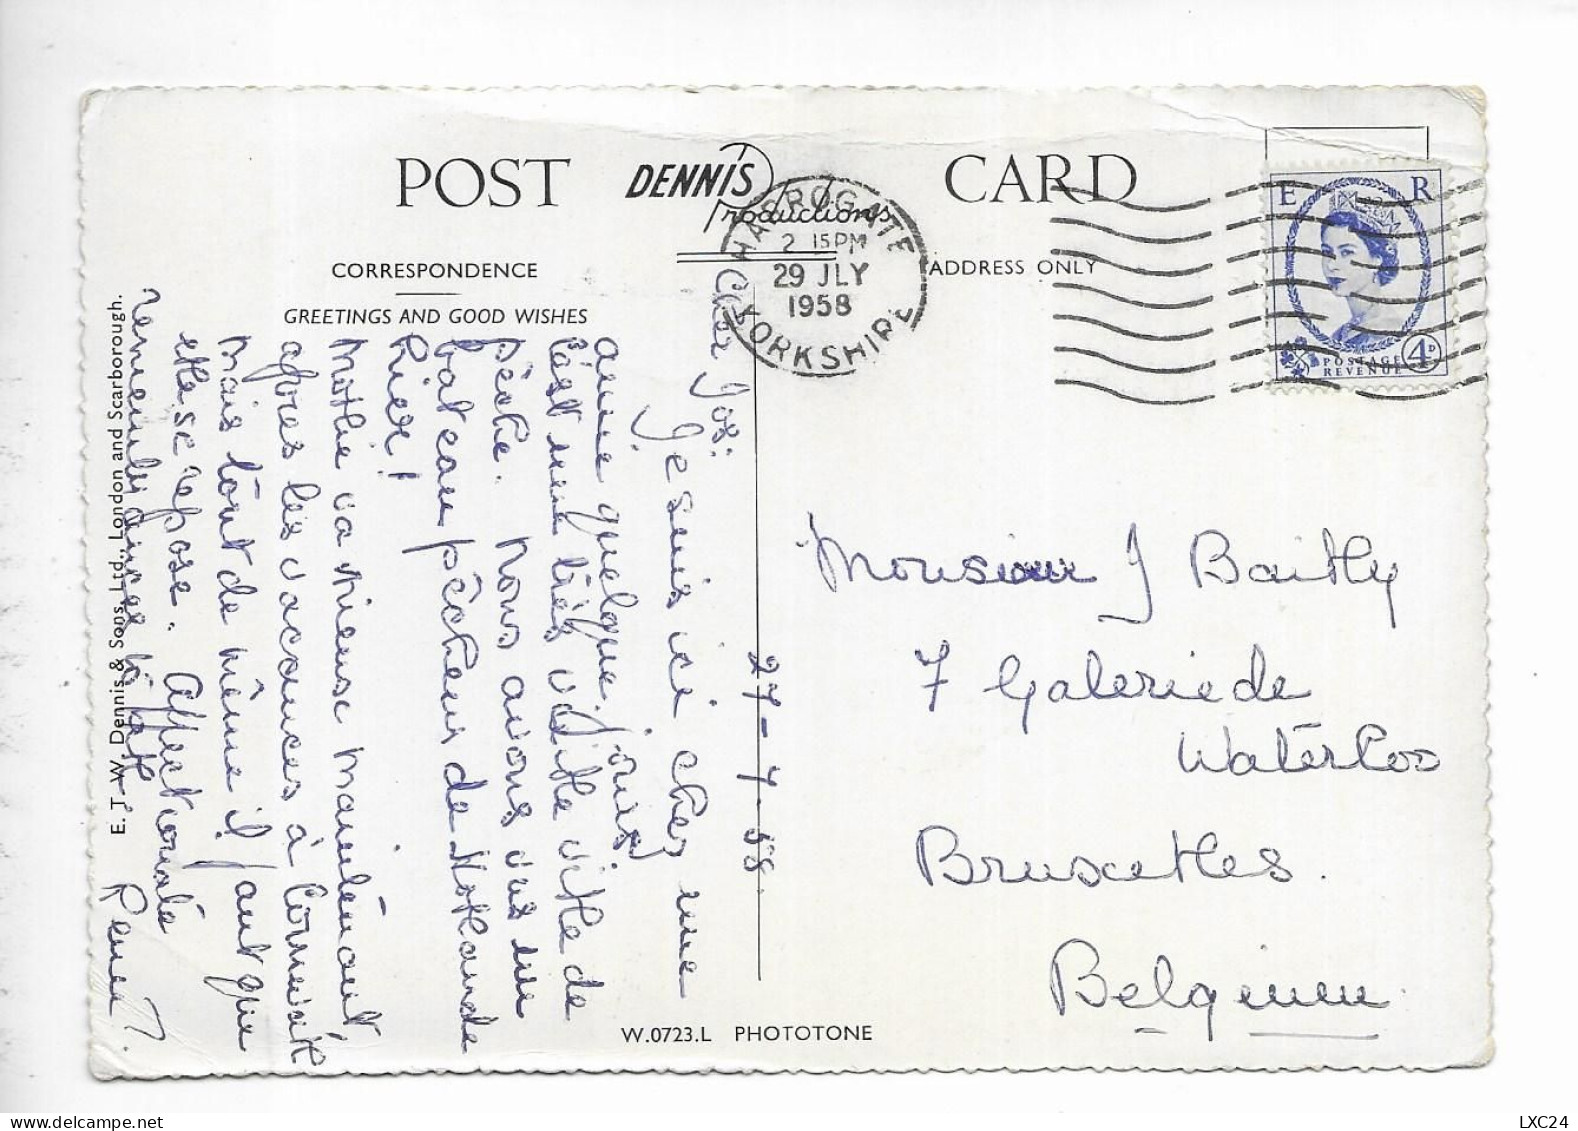 POST CARD
DENNIS
Productions
HARROGATE
2 15 PM
29 JLY
1958
YORKSHIRE
E R
POSTAGE
REVENUE
4D
CORRESPONDENCE
ADDRESS ONLY
GREETINGS AND GOOD WISHES
27-7-58
Cher Jos:
Je suis ici chez une
amie quelque jours.
C'est une très vielle ville de
pêche. Nous avons vus un
bateau pêcheur de Hollande
hier!
Mollie va mieuse maintenant
après les vacances à
Mais tout de même il faut que
elle se repose. Affectionate
Monsieur J Bailly
7 Galerie de
Waterloo
Bruxelles.
Belgium.
E. T. W. Dennis & Sons, Ltd., London and Scarborough.
W.0723.L PHOTOTONE
LXC24